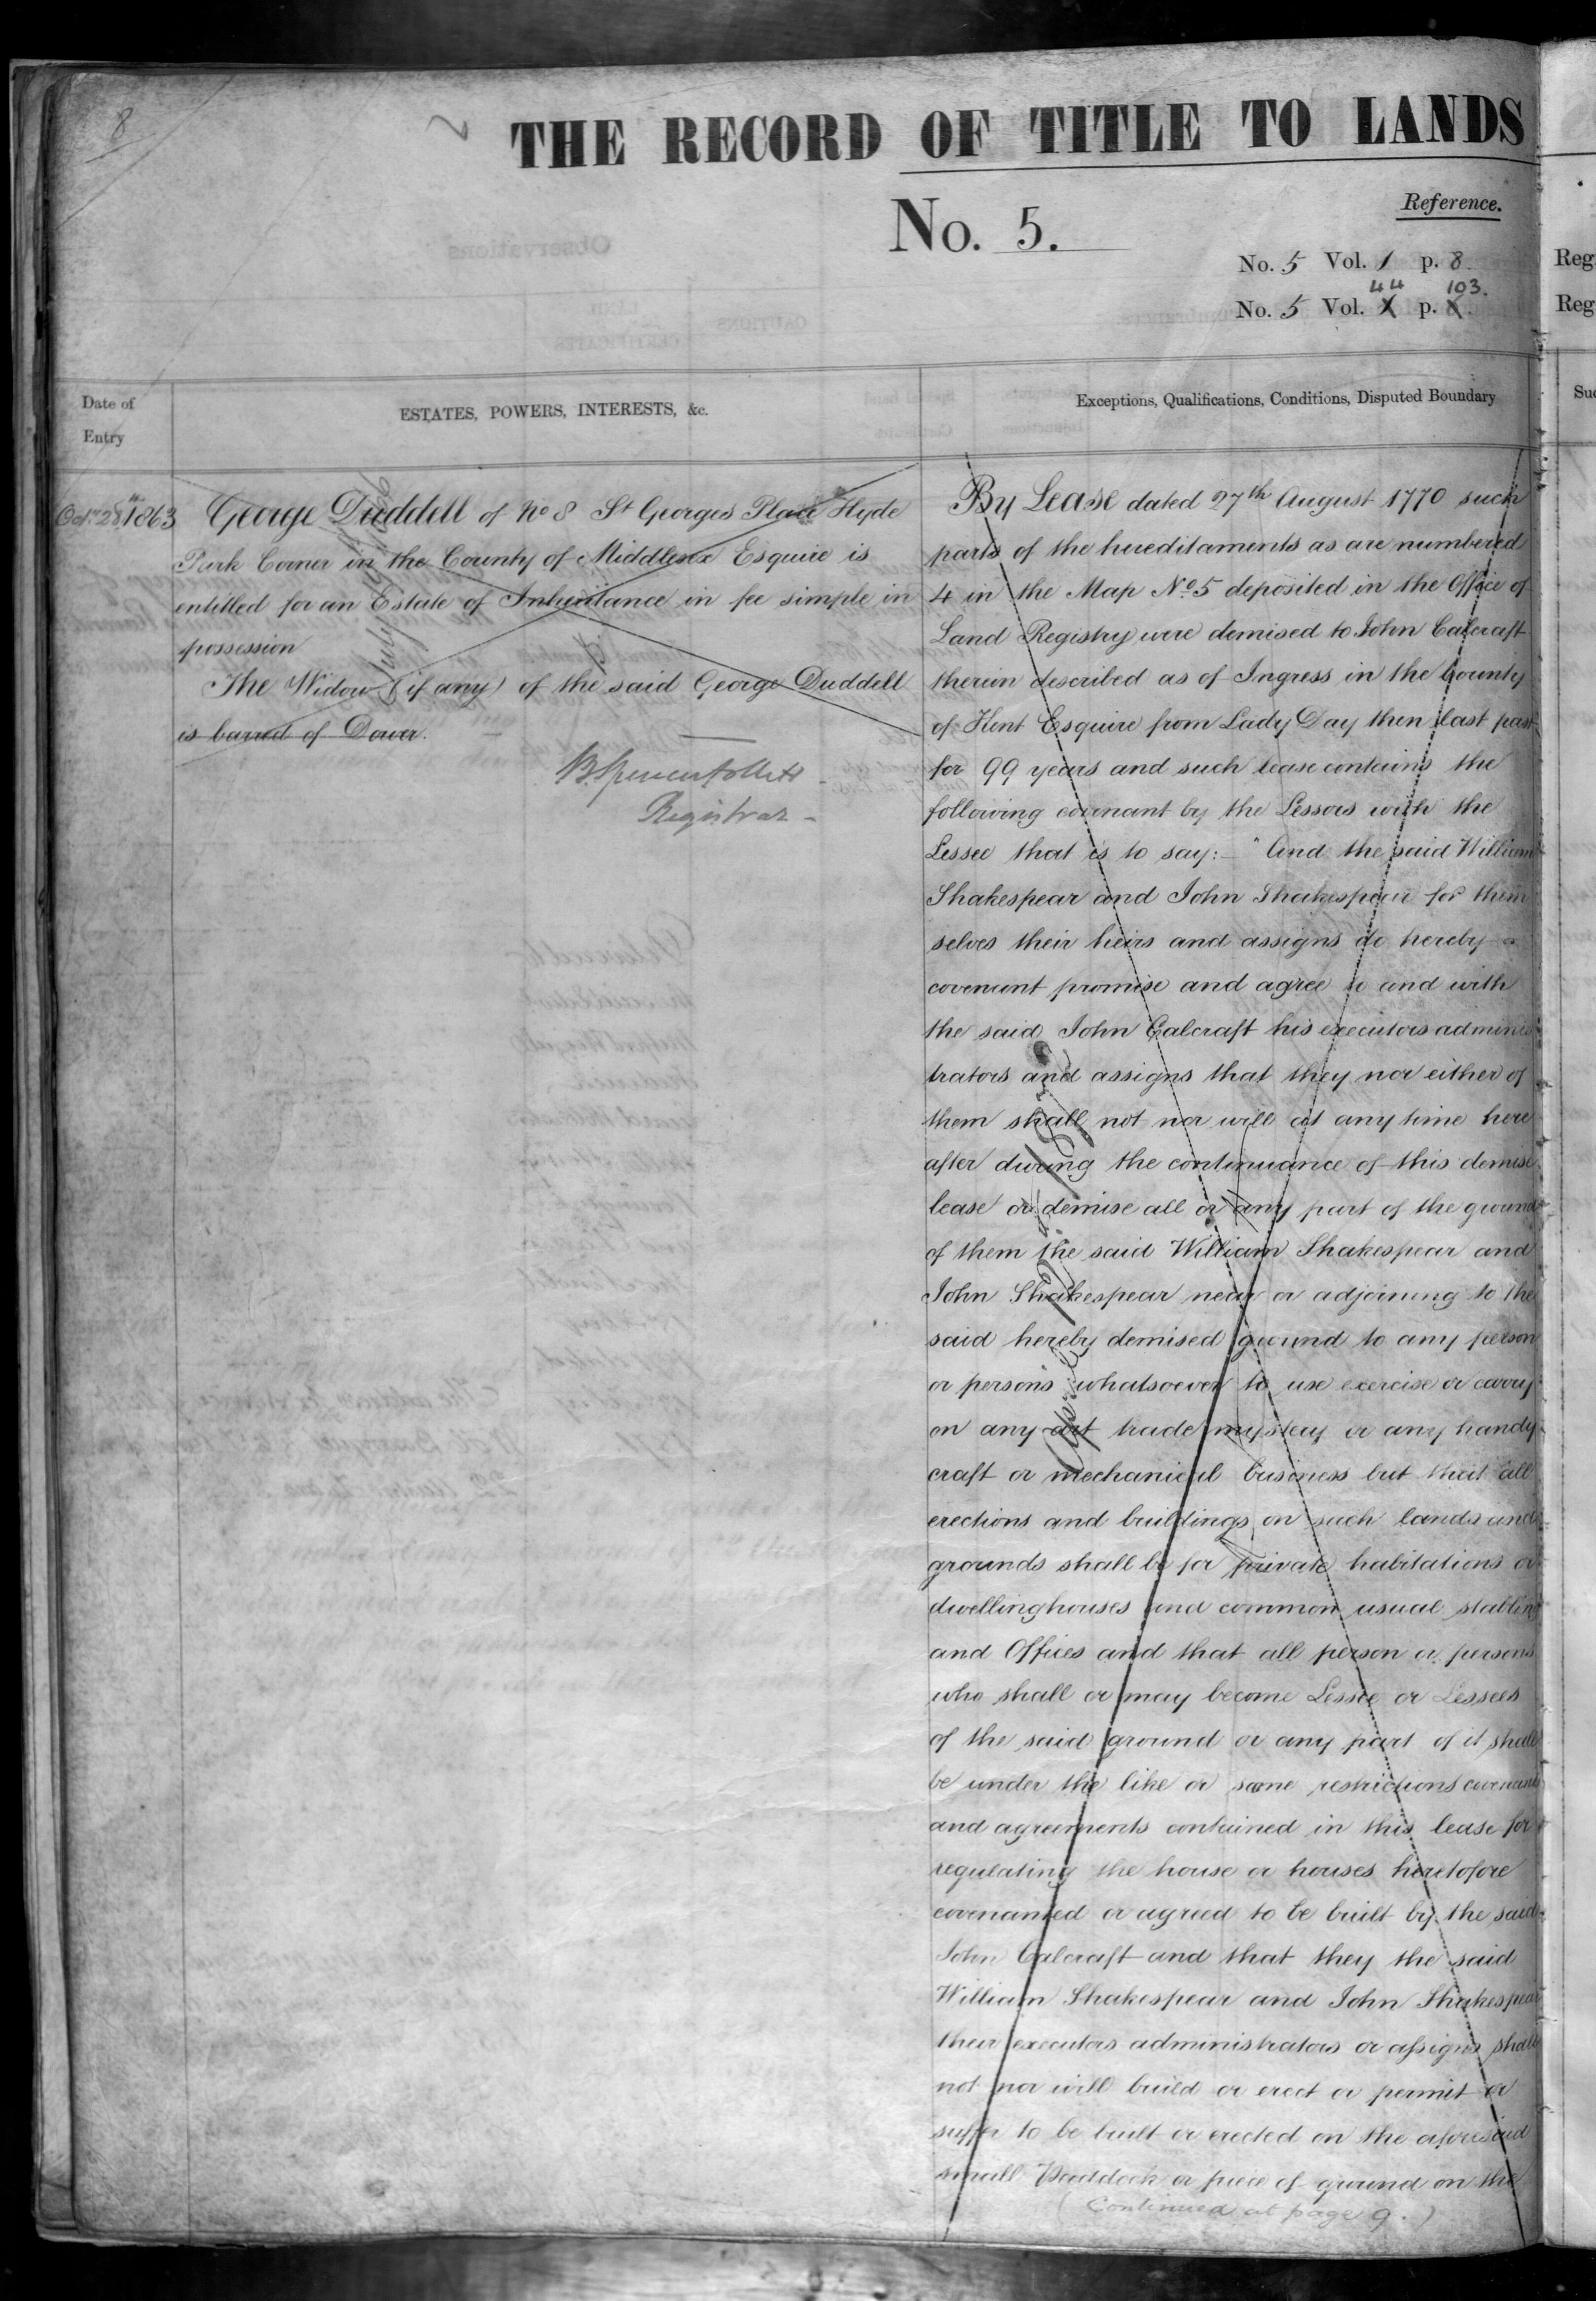 8
THE RECORD OF TITLE TO LANDS
No. 5.
Reference.
No. 5 Vol. 1 p. 8.
44 103.
No. 5 Vol. X p. X.
Reg
Reg
Date of
Entry
ESTATES, POWERS, INTERESTS, &c.
Exceptions, Qualifications, Conditions, Disputed Boundary
Su
Octr. 28th 1863
George Duddell of No 8 St Georges Place Hyde
Park Corner in the County of Middlesex Esquire is
entitled for an Estate of Inheritance in fee simple in
possession
The Widow (if any) of the said George Duddell
is barred of Dower.
B. Spencer Follett
Registrar
By Lease dated 27th August 1770 such
parts of the hereditaments as are numbered
4 in the Map No. 5 deposited in the Office of
Land Registry were demised to John Calcraft
therein described as of Ingress in the County
of Kent Esquire from Lady Day then last past
for 99 years and such lease contains the
following covenant by the Lessors with the
Lessee that is to say:- "And the said William
Shakespear and John Shakespear for them
selves their heirs and assigns do hereby
covenant promise and agree to and with
the said John Calcraft his executors adminis
trators and assigns that they nor either of
them shall not nor will at any time here
after during the continuance of this demise
lease or demise all or any part of the ground
of them the said William Shakespear and
John Shakespear near or adjoining to the
said hereby demised ground to any person
or persons whatsoever to use exercise or carry
on any art trade mystery or any handy
craft or mechanical business but that all
erections and buildings on such lands and
grounds shall be for private habitations or
dwellinghouses and common usual stabling
and Offices and that all person or persons
who shall or may become Lessee or Lessees
of the said ground or any part of it shall
be under the like or same restrictions covenants
and agreements contained in this lease for
regulating the house or houses heretofore
covenanted or agreed to be built by the said
John Calcraft and that they the said
William Shakespear and John Shakespear
their executors administrators or assigns shall
not nor will build or erect or permit or
suffer to be built or erected on the aforesaid
small Paddock or piece of ground on the
(Continued at page 9.)